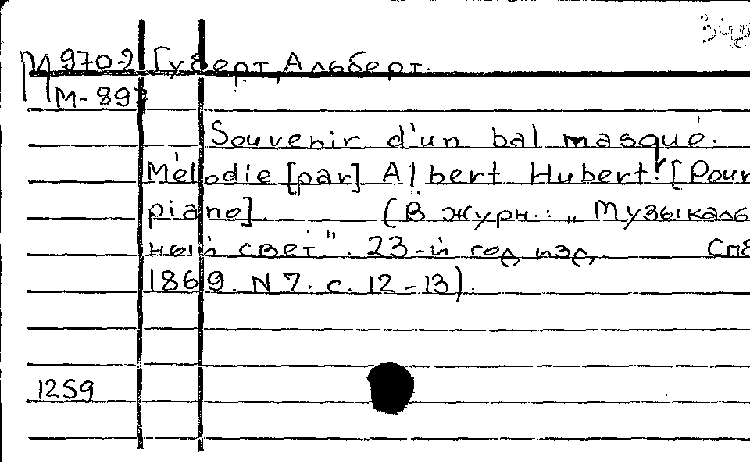 М 970-2 Губерт, Альберт.
М-897
Souvenir d'un bal masqué.
Mélodie [par] Albert Hubert. [Pour
piano] (В журн.: „Музыкаль
ный свет". 23-й год изд. СПб
1869. N 7. с. 12-13).
1259